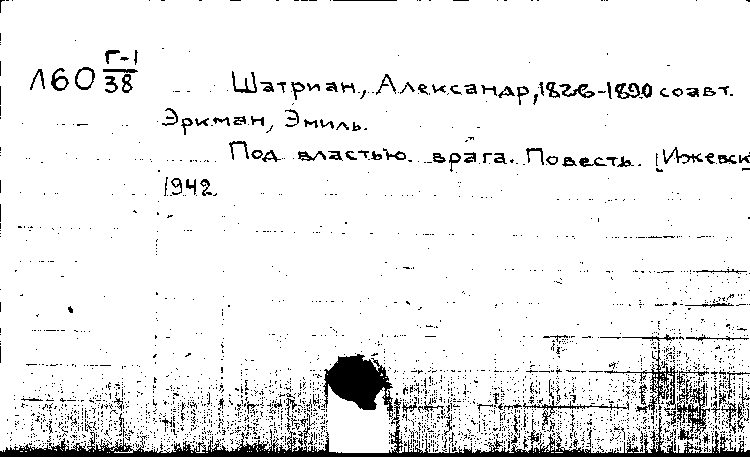 Л60 Г-1/38
Шатриан, Александр, 1826-1890 соавт.
Эркман, Эмиль.
Под властью врага. Повесть. [Ижевск]
1942